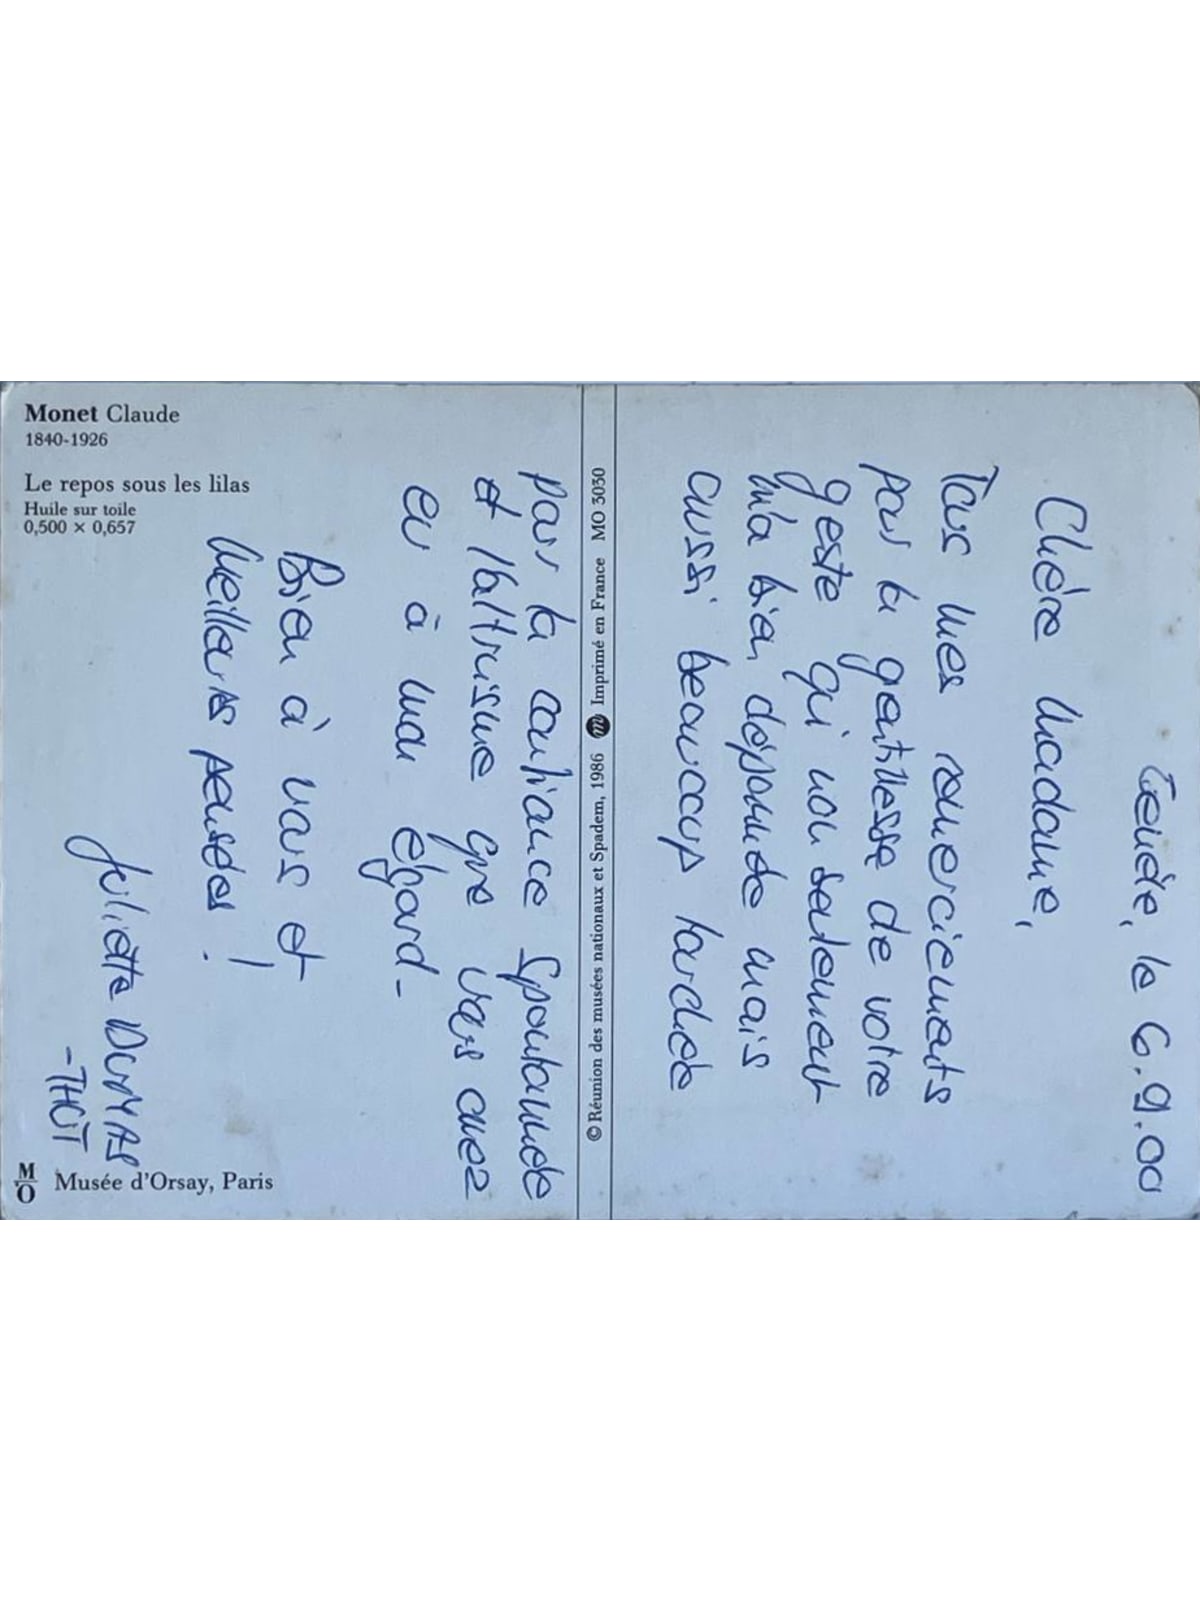 Genève, le 6.9.00
Chère Madame,
Tous mes remerciements
pour la gentillesse de votre
geste qui non seulement
m'a bien dépannée mais
aussi beaucoup touchée
pour la confiance spontanée
et l'altruisme que vous avez
eu à mon égard-
Bien à vous et
meilleures pensées !
Juliette DUMAS
-THUT
Monet Claude
1840-1926
Le repos sous les lilas
Huile sur toile
0,500 × 0,657
© Réunion des musées nationaux et Spadem, 1986 m Imprimé en France MO 3030
M
O
Musée d'Orsay, Paris